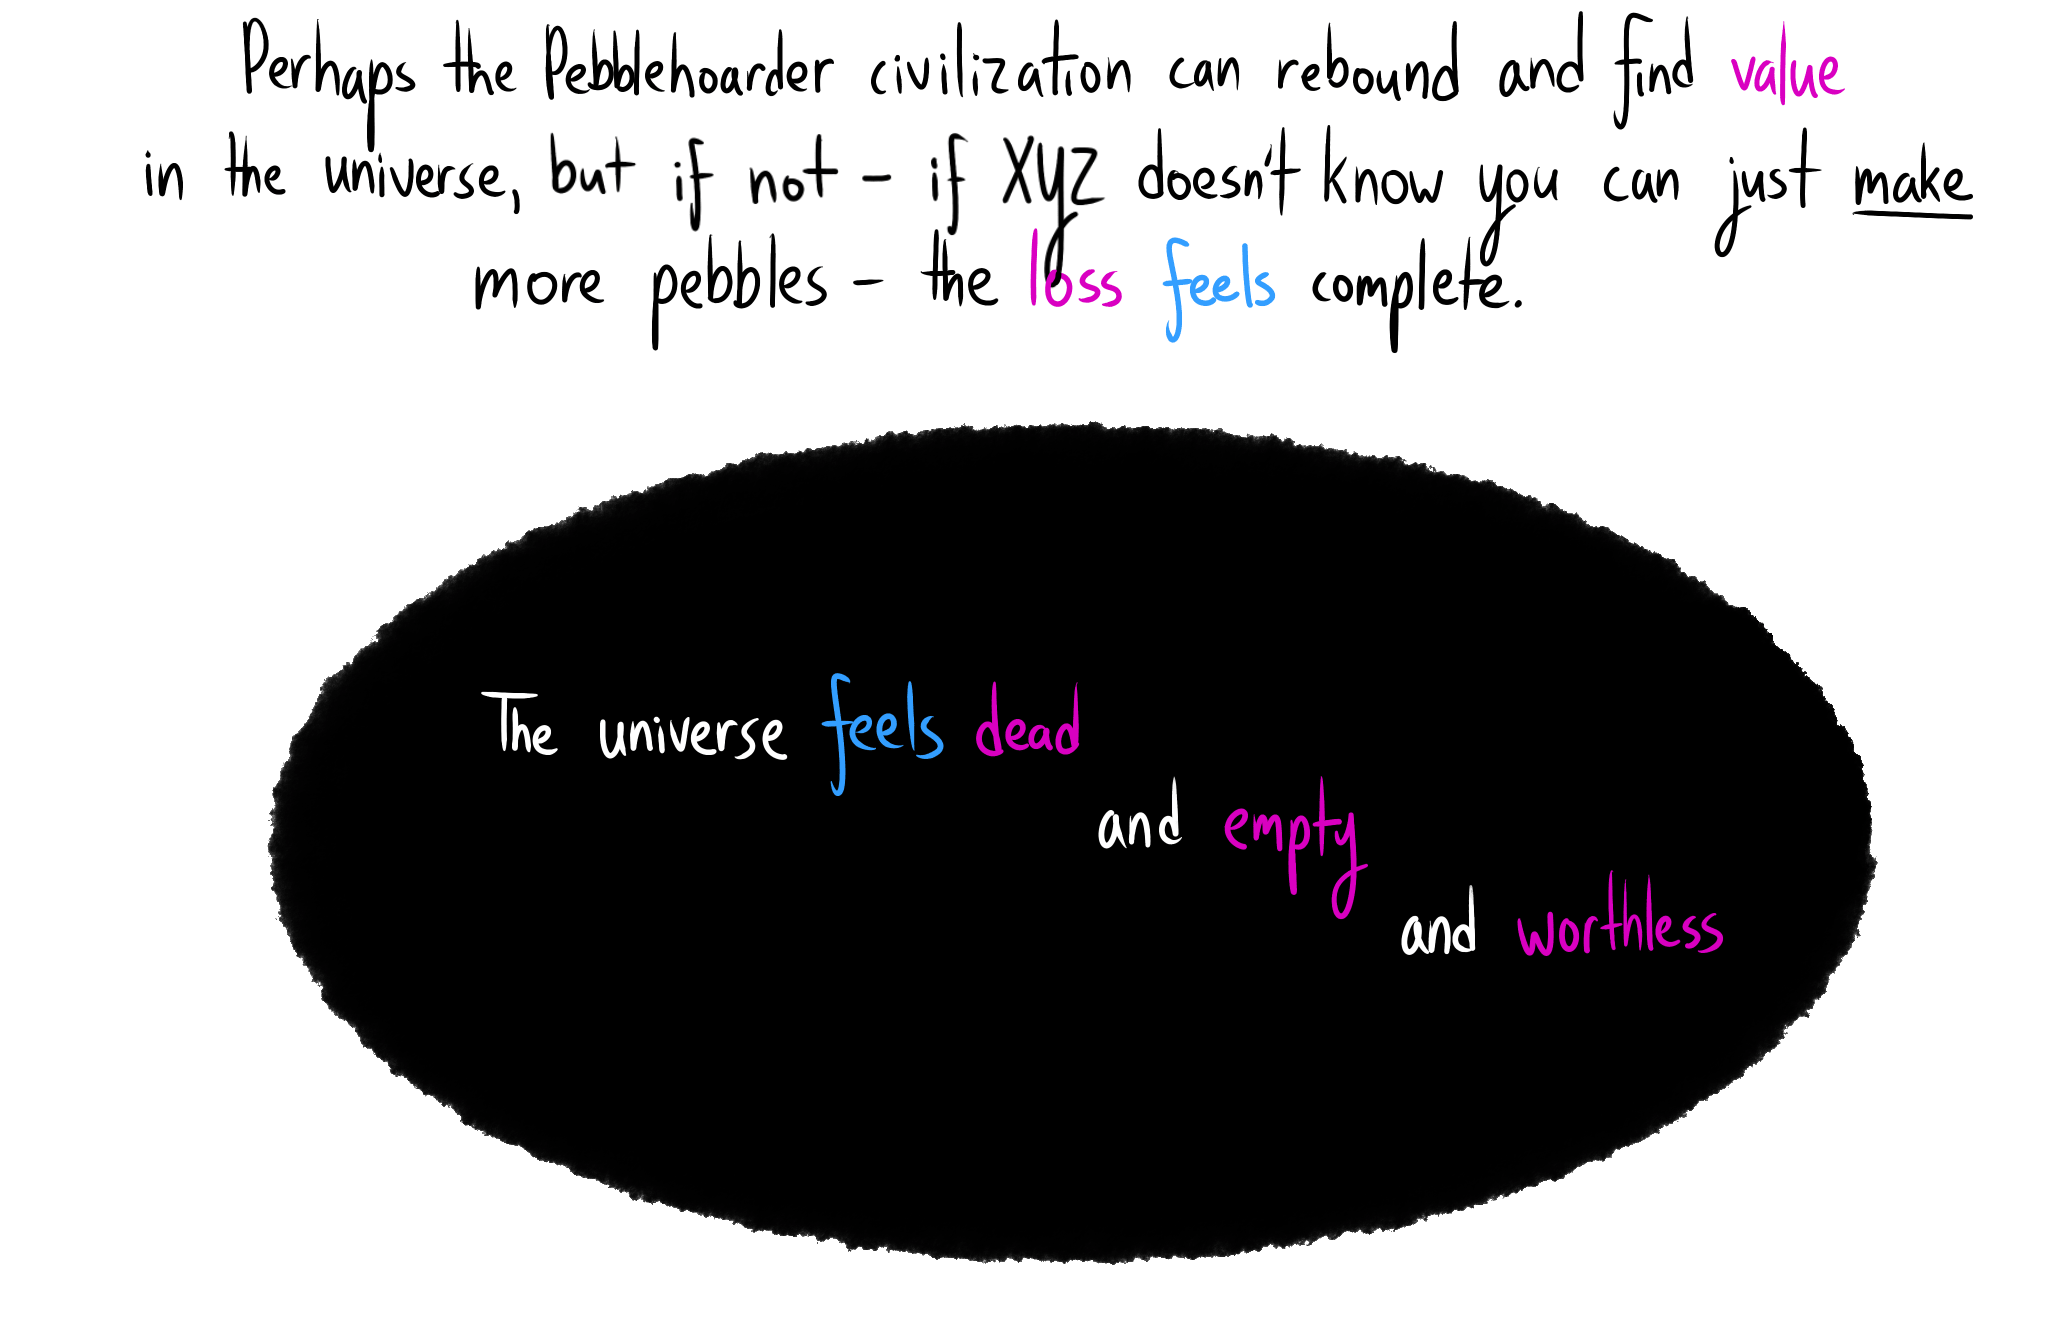 Perhaps the Pebblehoarder civilization can rebound and find value
in the universe, but if not - if XYZ doesn't know you can just make
more pebbles - the loss feels complete.
The universe feels dead
and empty
and worthless